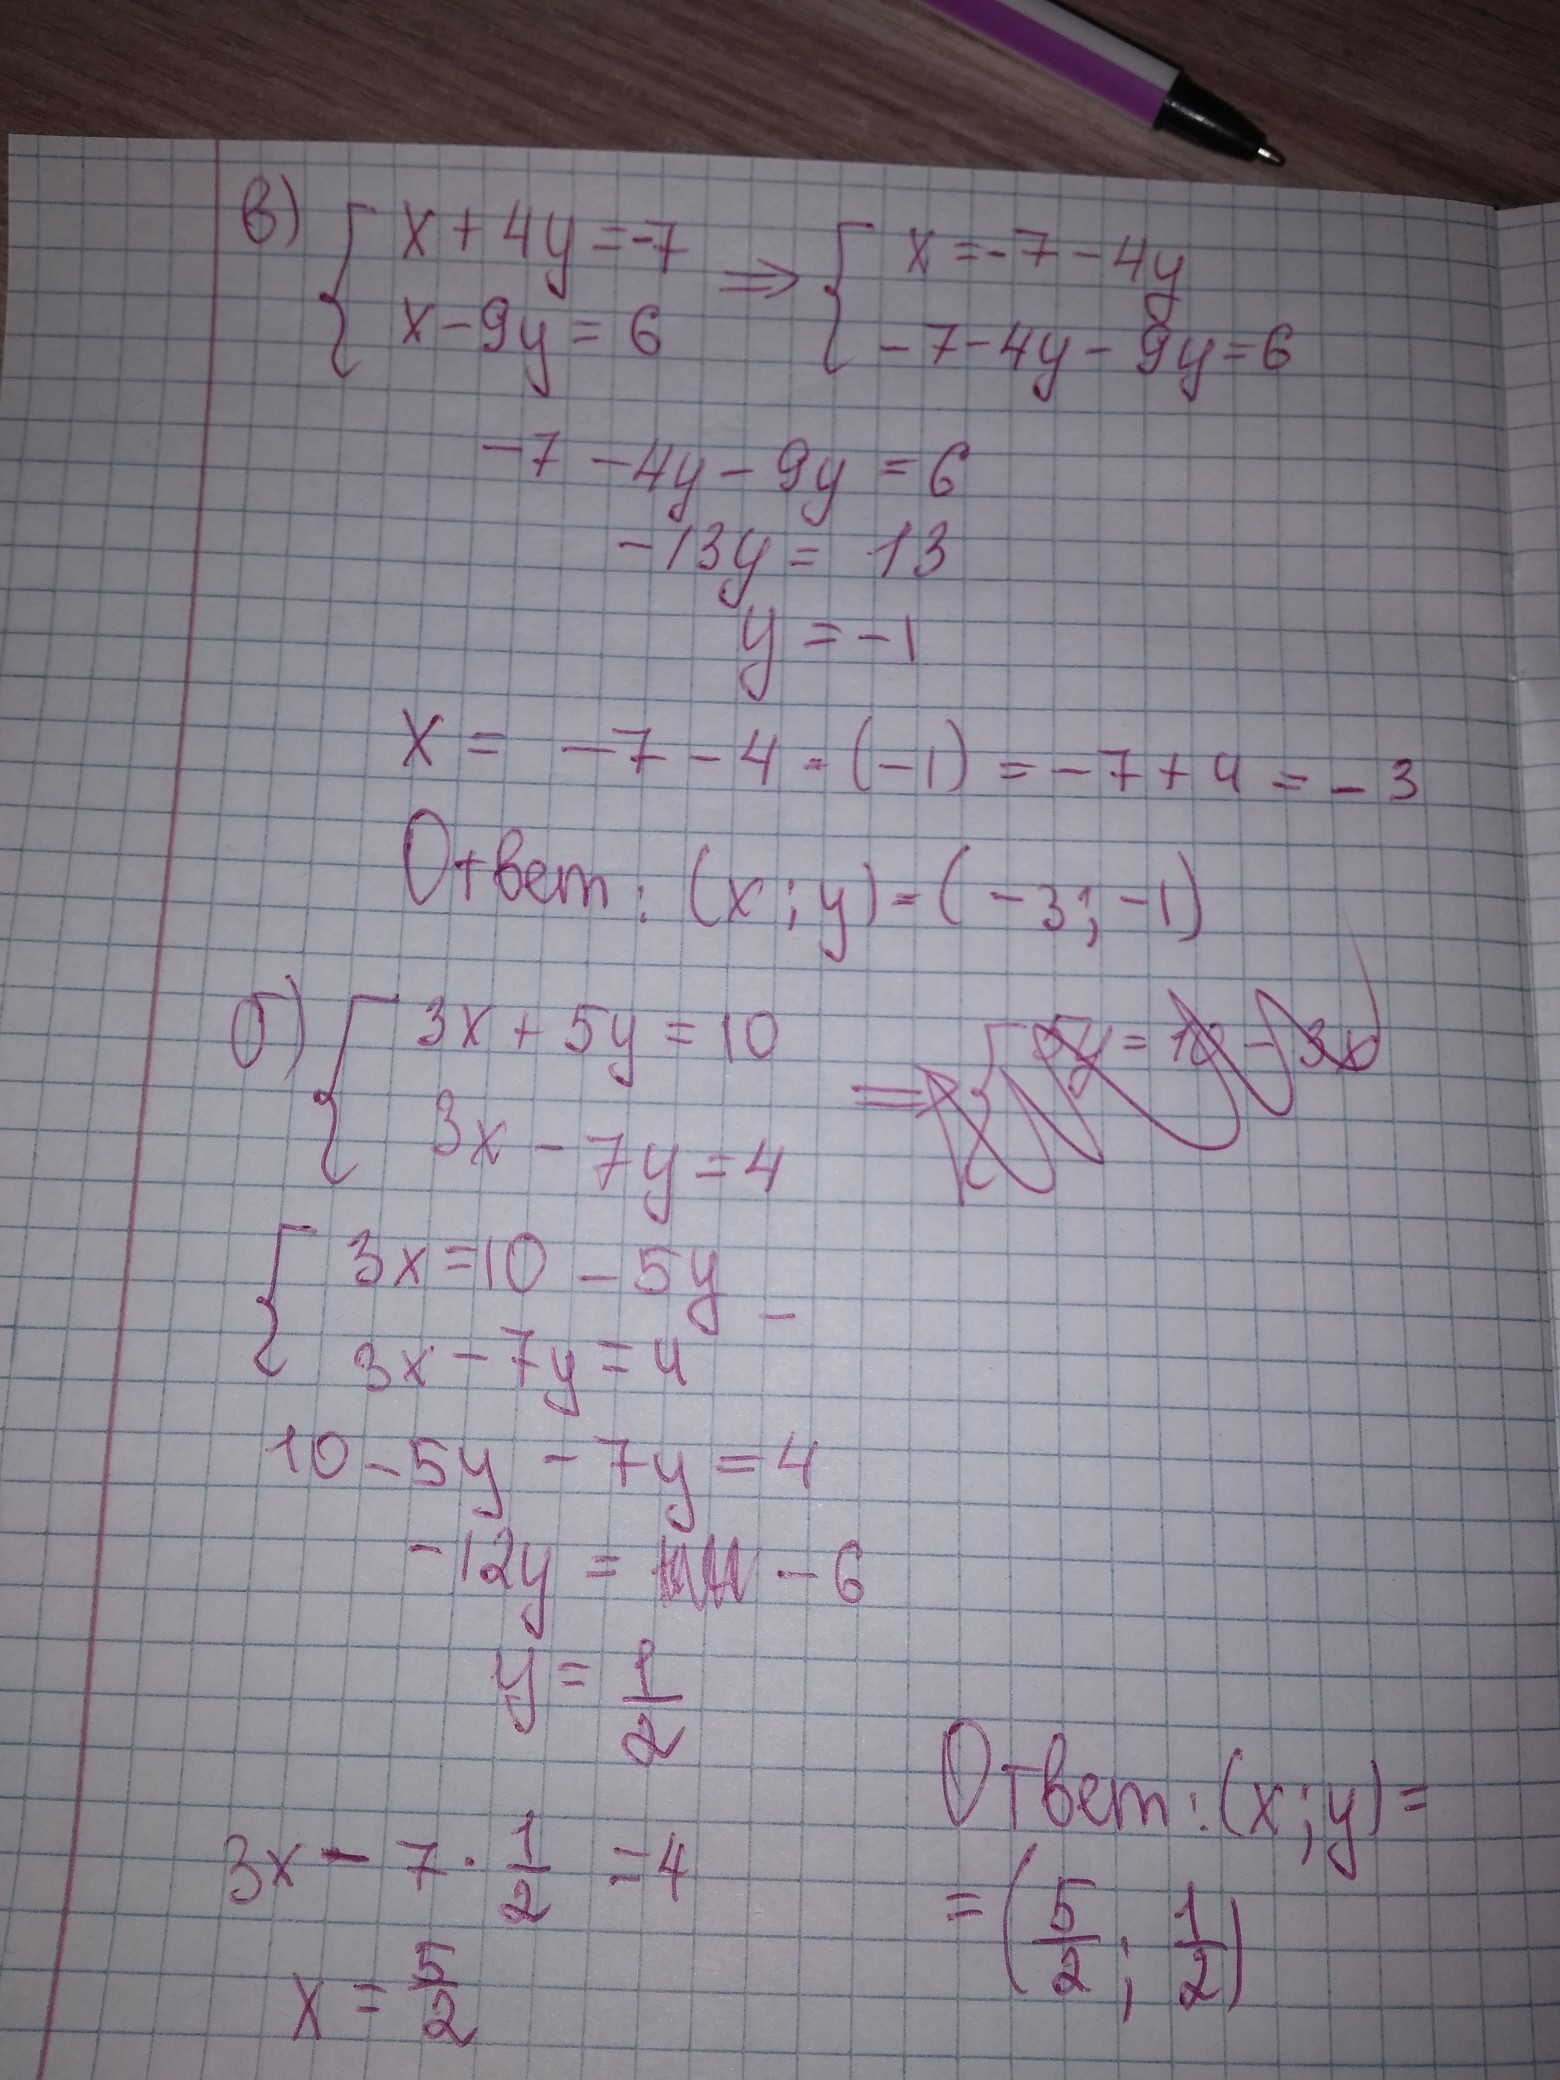 в) { x + 4y = -7 ⇒ { x = -7 - 4y
x - 9y = 6 - 7 - 4y - 9y = 6
-7 - 4y - 9y = 6
-13y = 13
y = -1
x = -7 - 4 · (-1) = -7 + 4 = -3
Ответ: (x; y) = (-3; -1)
б) { 3x + 5y = 10 ⇒ { 5y = 10 - 3x
3x - 7y = 4
{ 3x = 10 - 5y -
3x - 7y = 4
10 - 5y - 7y = 4
-12y = - 6
y = 1/2
3x - 7 · 1/2 = 4
x = 5/2
Ответ: (x; y) =
= (5/2; 1/2)